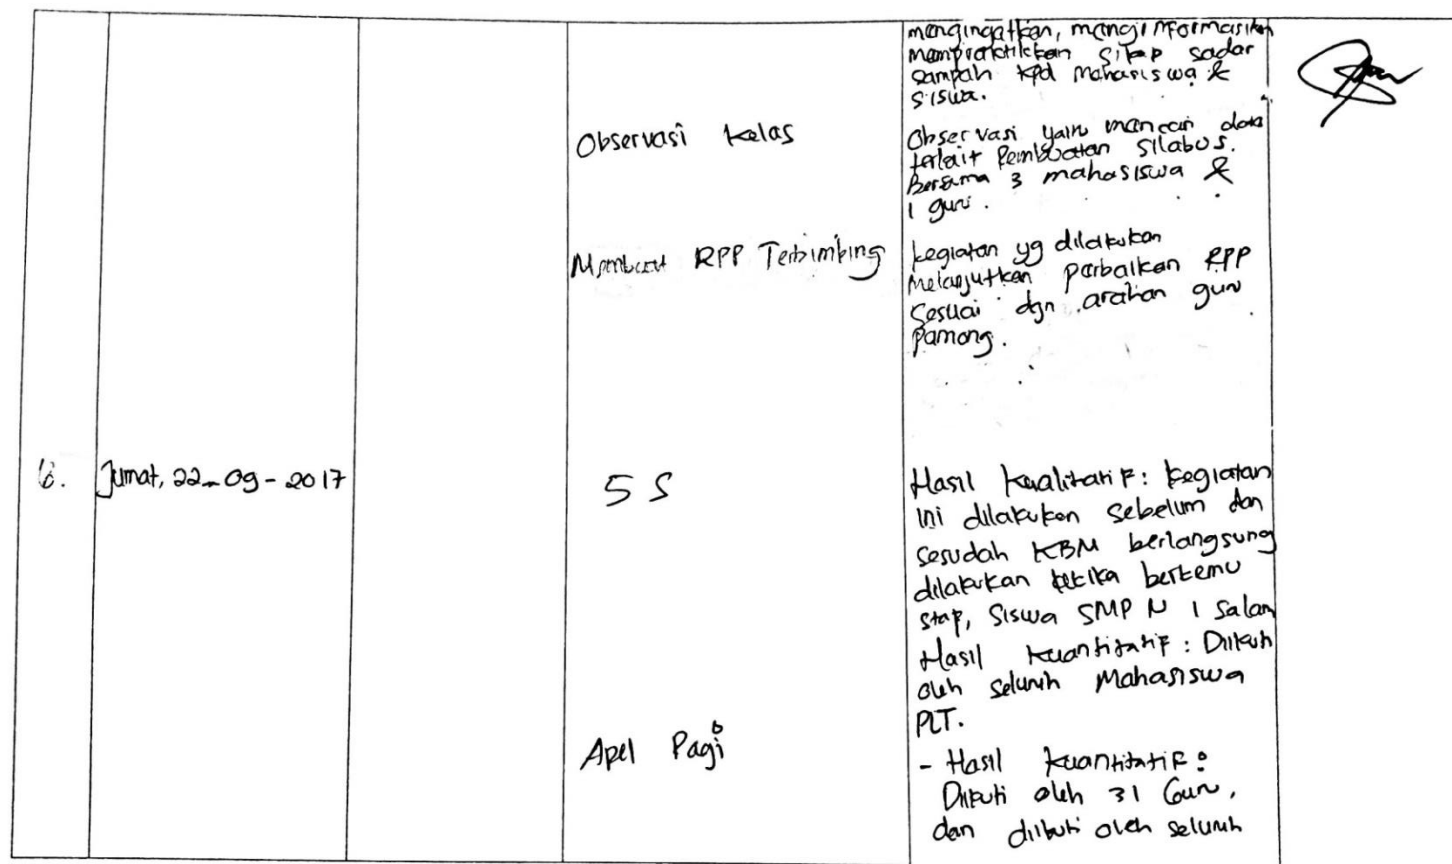 mengingatkan, menginformasikan
mempraktikkan sikap sadar
sampah kpd mahasiswa &
siswa.
Observasi kelas
Observasi yaitu mencari data
terkait Pembuatan silabus.
Bersama 3 mahasiswa &
1 guru.
Membuat RPP Terbimbing
kegiatan yg dilakukan
Melanjutkan perbaikan RPP
Sesuai dgn arahan guru
pamong.
6. Jumat, 22-09-2017
5 S
Hasil Kualitatif: kegiatan
ini dilakukan sebelum dan
sesudah KBM berlangsung
dilakukan ketika bertemu
staf, siswa SMP N 1 Salam
Hasil Kuantitatif: Diikuti
oleh seluruh Mahasiswa
PLT.
Apel Pagi
- Hasil Kuantitatif:
Diikuti oleh 31 Guru,
dan diikuti oleh seluruh